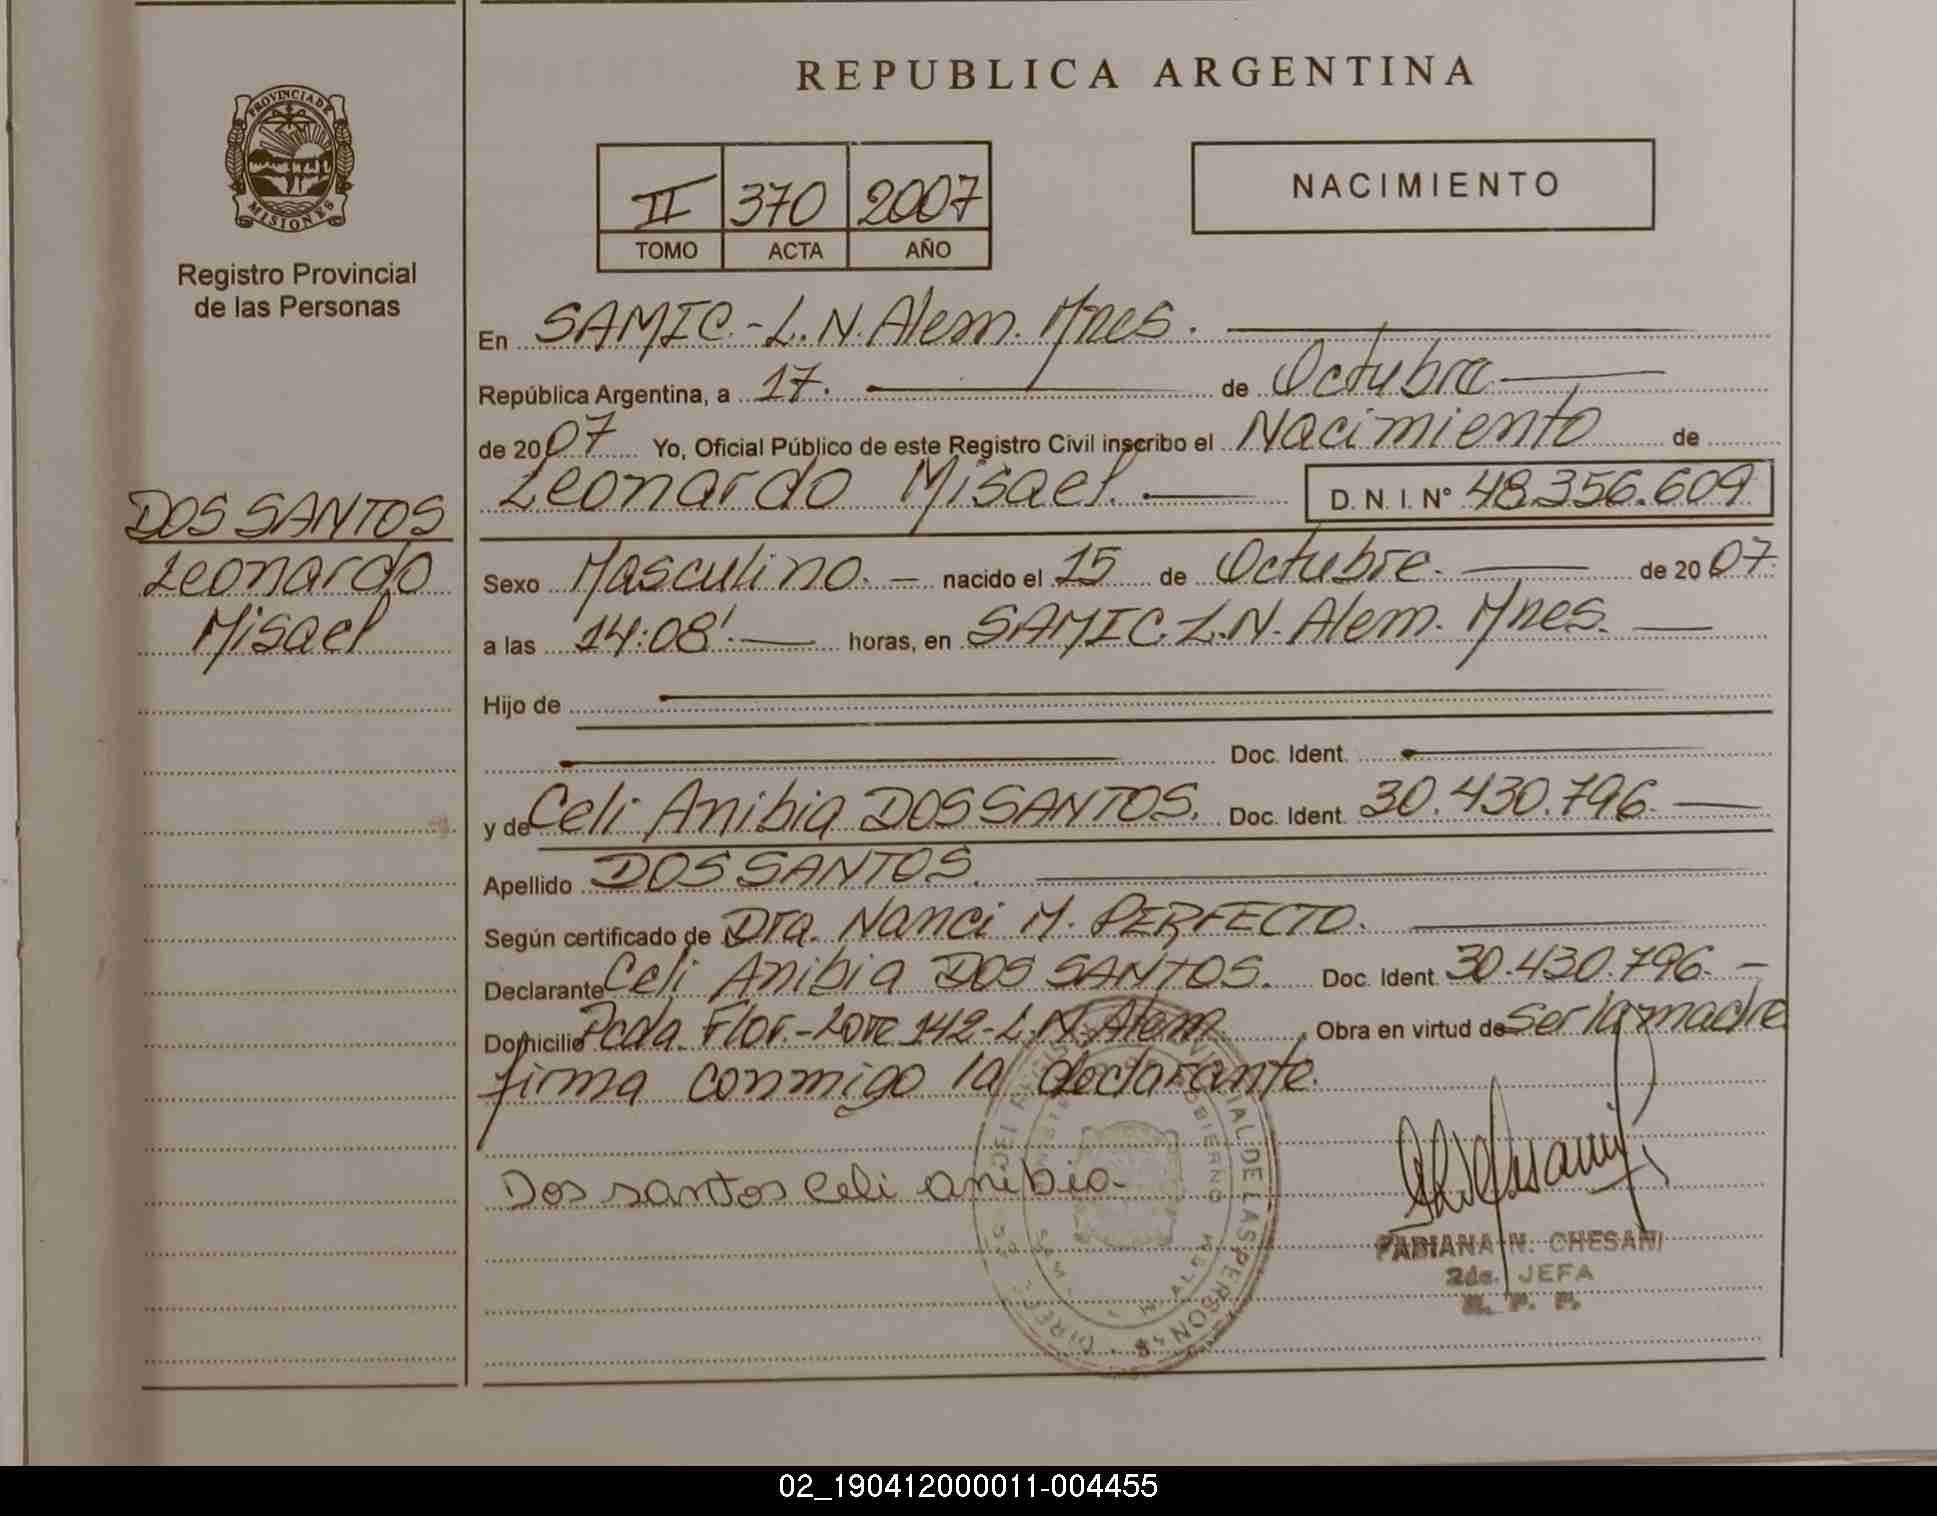 REPUBLICA ARGENTINA
PROVINCIA DE MISIONES
Registro Provincial
de las Personas
II 370 2007
TOMO ACTA AÑO
NACIMIENTO
En SAMIC.-L.N.Alem. Mnes.
República Argentina, a 17. de Octubre
de 2007 Yo, Oficial Público de este Registro Civil inscribo el Nacimiento de
Leonardo Misael. D. N. I. Nº 48.356.609
DOS SANTOS
Leonardo
Misael
Sexo Masculino. nacido el 15 de Octubre. de 2007.
a las 14:08'. horas, en SAMIC.L.N.Alem. Mnes.
Hijo de
Doc. Ident.
y de Celi Anibia DOS SANTOS. Doc. Ident. 30.430.796.
Apellido DOS SANTOS.
Según certificado de Dra. Nanci M. PERFECTO.
Declarante Celi Anibia DOS SANTOS. Doc. Ident. 30.430.796.
Domicilio Pcda. Flor.-Lote 142-L.N.Alem. Obra en virtud de ser la madre
firma conmigo la declarante.
Dos santos Celi anibia.
FABIANA N. CHESANI
2da. JEFA
02_190412000011-004455